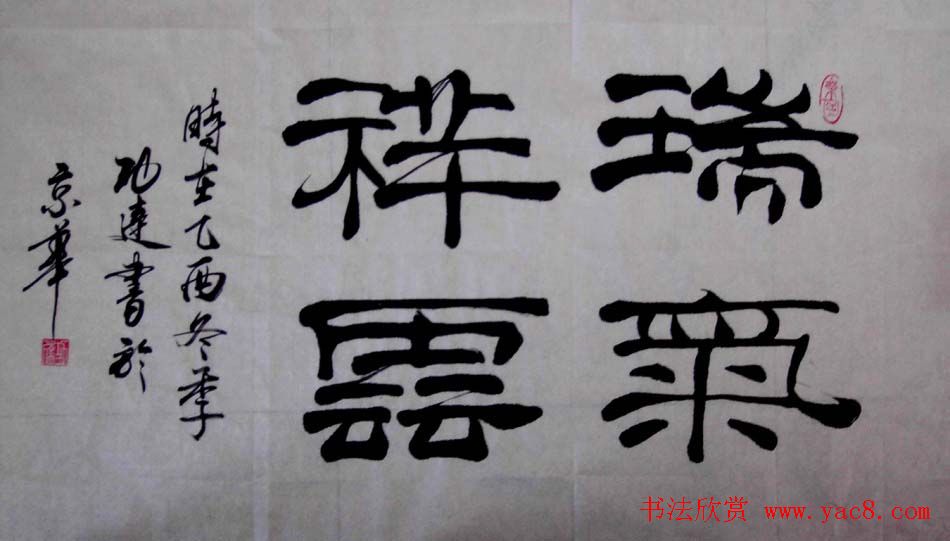 瑞氣
祥雲
時在乙酉冬季
功達書於
京華
书法欣赏 www.yac8.com